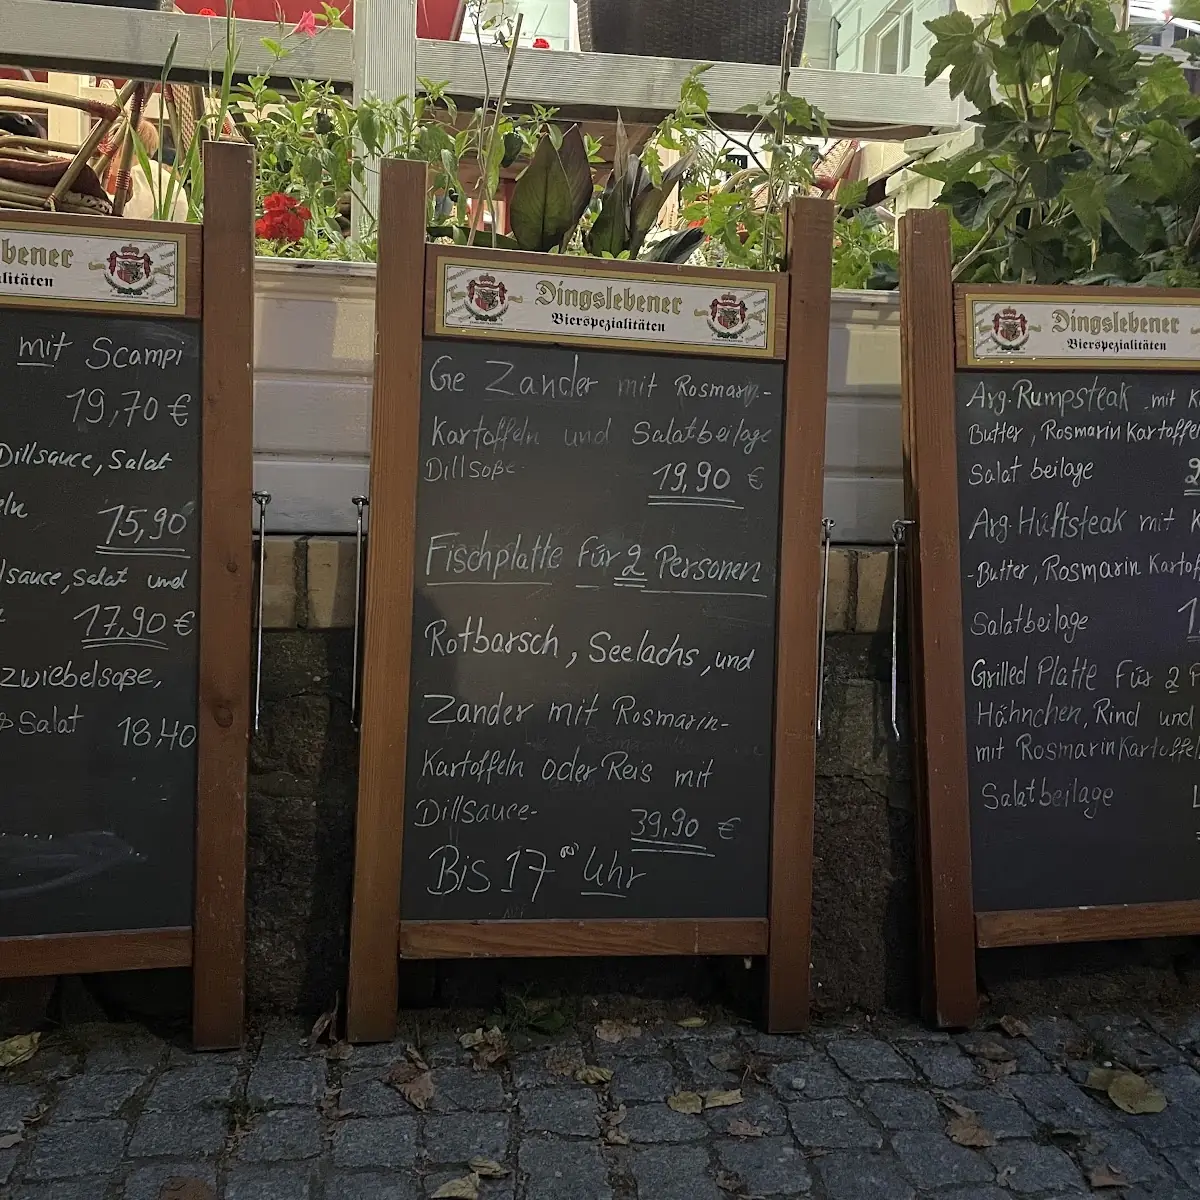 bener
litäten
mit Scampi
19,70 €
Dillsauce, Salat
eln
15,90
lsauce, Salat und
17,90 €
zwiebelsoße,
Salat 18,40
Dingslebener
Bierspezialitäten
Ge Zander mit Rosmarin-
Kartoffeln und Salatbeilage
Dillsoße 19,90 €
Fischplatte Für 2 Personen
Rotbarsch, Seelachs, und
Zander mit Rosmarin-
Kartoffeln oder Reis mit
Dillsauce- 39,90 €
Bis 17 00 Uhr
Dingslebener
Bierspezialitäten
Arg. Rumpsteak mit K
Butter, Rosmarin Kartoffe
Salat beilage 2
Arg. Hüftsteak mit
-Butter, Rosmarin Kartof
Salatbeilage 1
Grilled Platte Für 2 P
Hähnchen, Rind und
mit Rosmarin Kartoffel
Salatbeilage